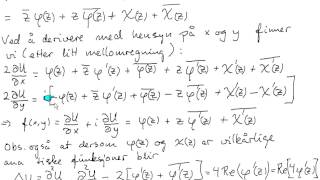 = z̄ φ(z) + z \overline{φ(z)} + χ(z) + \overline{χ(z)}
Ved å derivere med hensyn på x og y finner
vi (etter litt mellomregning):
2 ∂U/∂x = φ(z) + z̄ φ'(z) + \overline{φ(z)} + z \overline{φ'(z)} + χ'(z) + \overline{χ'(z)}
2 ∂U/∂y = i[-φ(z) + z̄ φ'(z) + \overline{φ(z)} - z \overline{φ'(z)} + χ'(z) - \overline{χ'(z)}]
⇒ f(x,y) = ∂U/∂x + i ∂U/∂y = φ(z) + z \overline{φ'(z)} + \overline{χ'(z)}
Obs. også at dersom φ(z) og χ(z) er vilkårlige
funksjoner blir
= 2[φ'(z) + \overline{φ'(z)}] = 4Re(φ'(z)) = Re(4φ'(z))